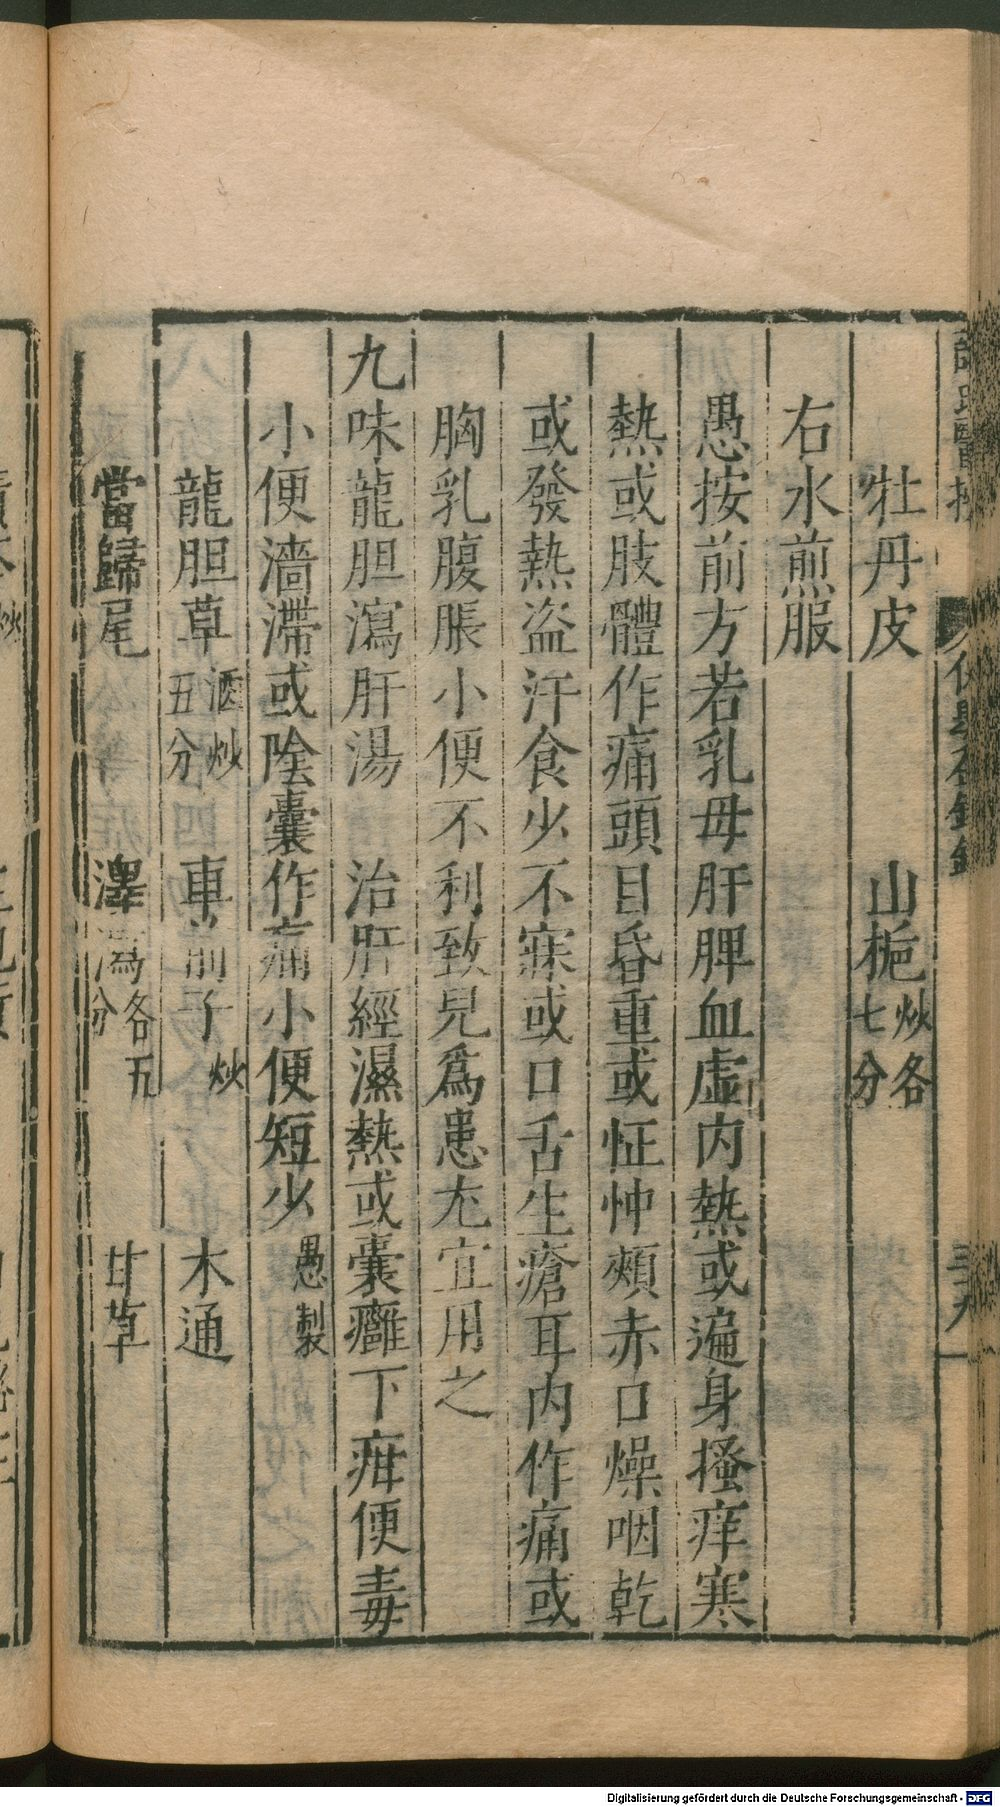 牡丹皮　山梔炒各七分
右水煎服
愚按前方若乳母肝脾血虚内熱或遍身搔痒寒
熱或肢體作痛頭目昏重或怔忡頰赤口燥咽乾
或發熱盜汗食少不寐或口舌生瘡耳内作痛或
胸乳腹脹小便不利致兒爲患尢宜用之
九味龍胆瀉肝湯　治肝經濕熱或囊癰下疳便毒
小便濇滯或陰囊作痛小便短少愚製
龍胆草酒炒五分　車前子炒　木通
當歸尾　澤瀉各五分　甘草
Digitalisierung gefördert durch die Deutsche Forschungsgemeinschaft - DFG